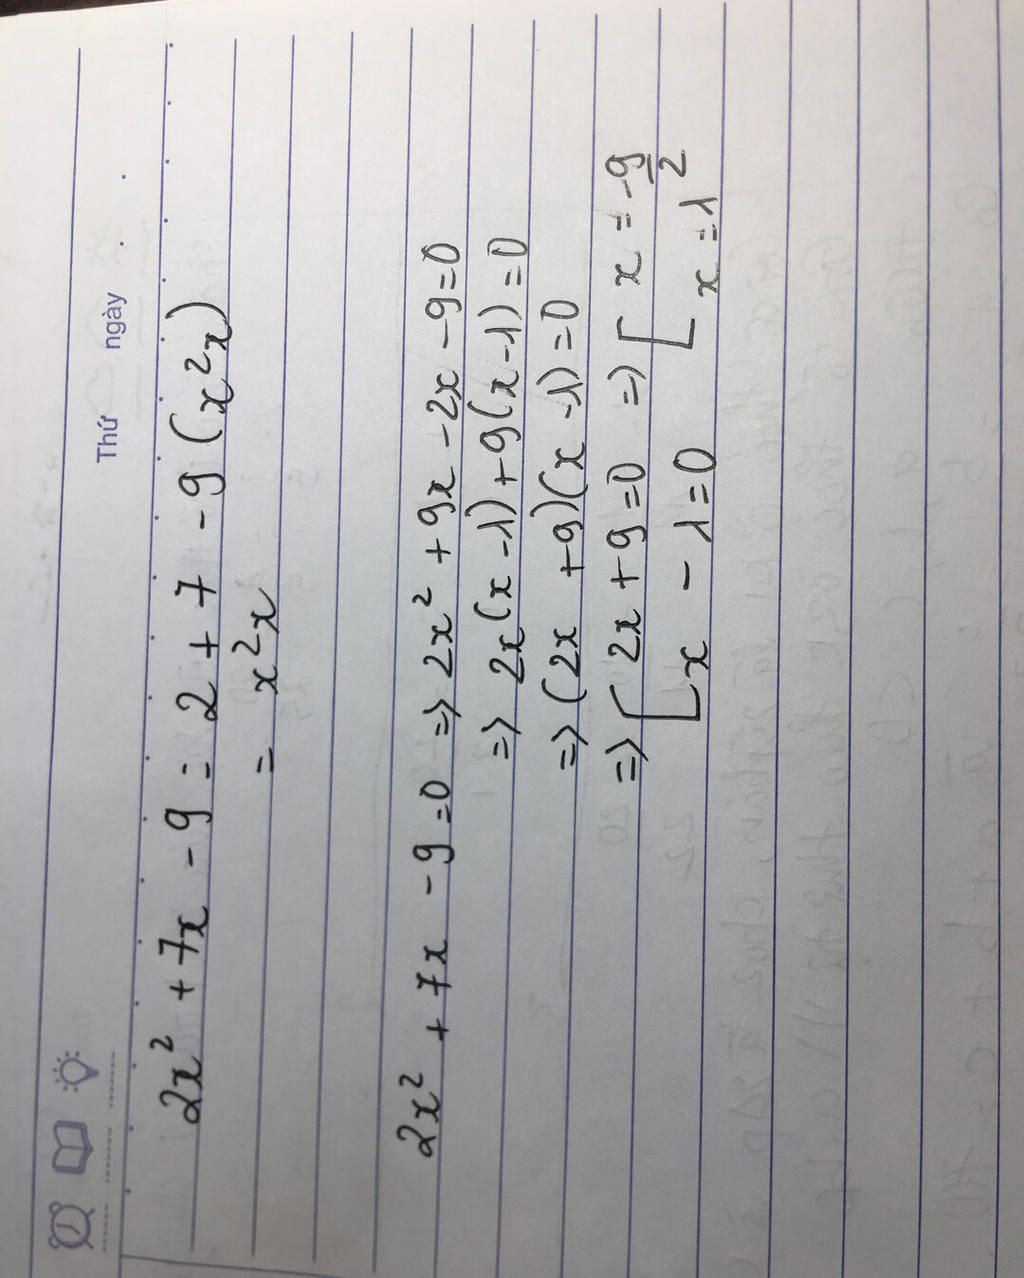 Thứ ngày
2x² + 7x - 9 = 2 + 7 - 9 (x²x)
= x²x
2x² + 7x - 9 = 0 => 2x² + 9x - 2x - 9 = 0
=> 2x(x - 1) + 9(x - 1) = 0
=> (2x + 9)(x - 1) = 0
=> [ 2x + 9 = 0 => [ x = -9/2
x - 1 = 0 x = 1